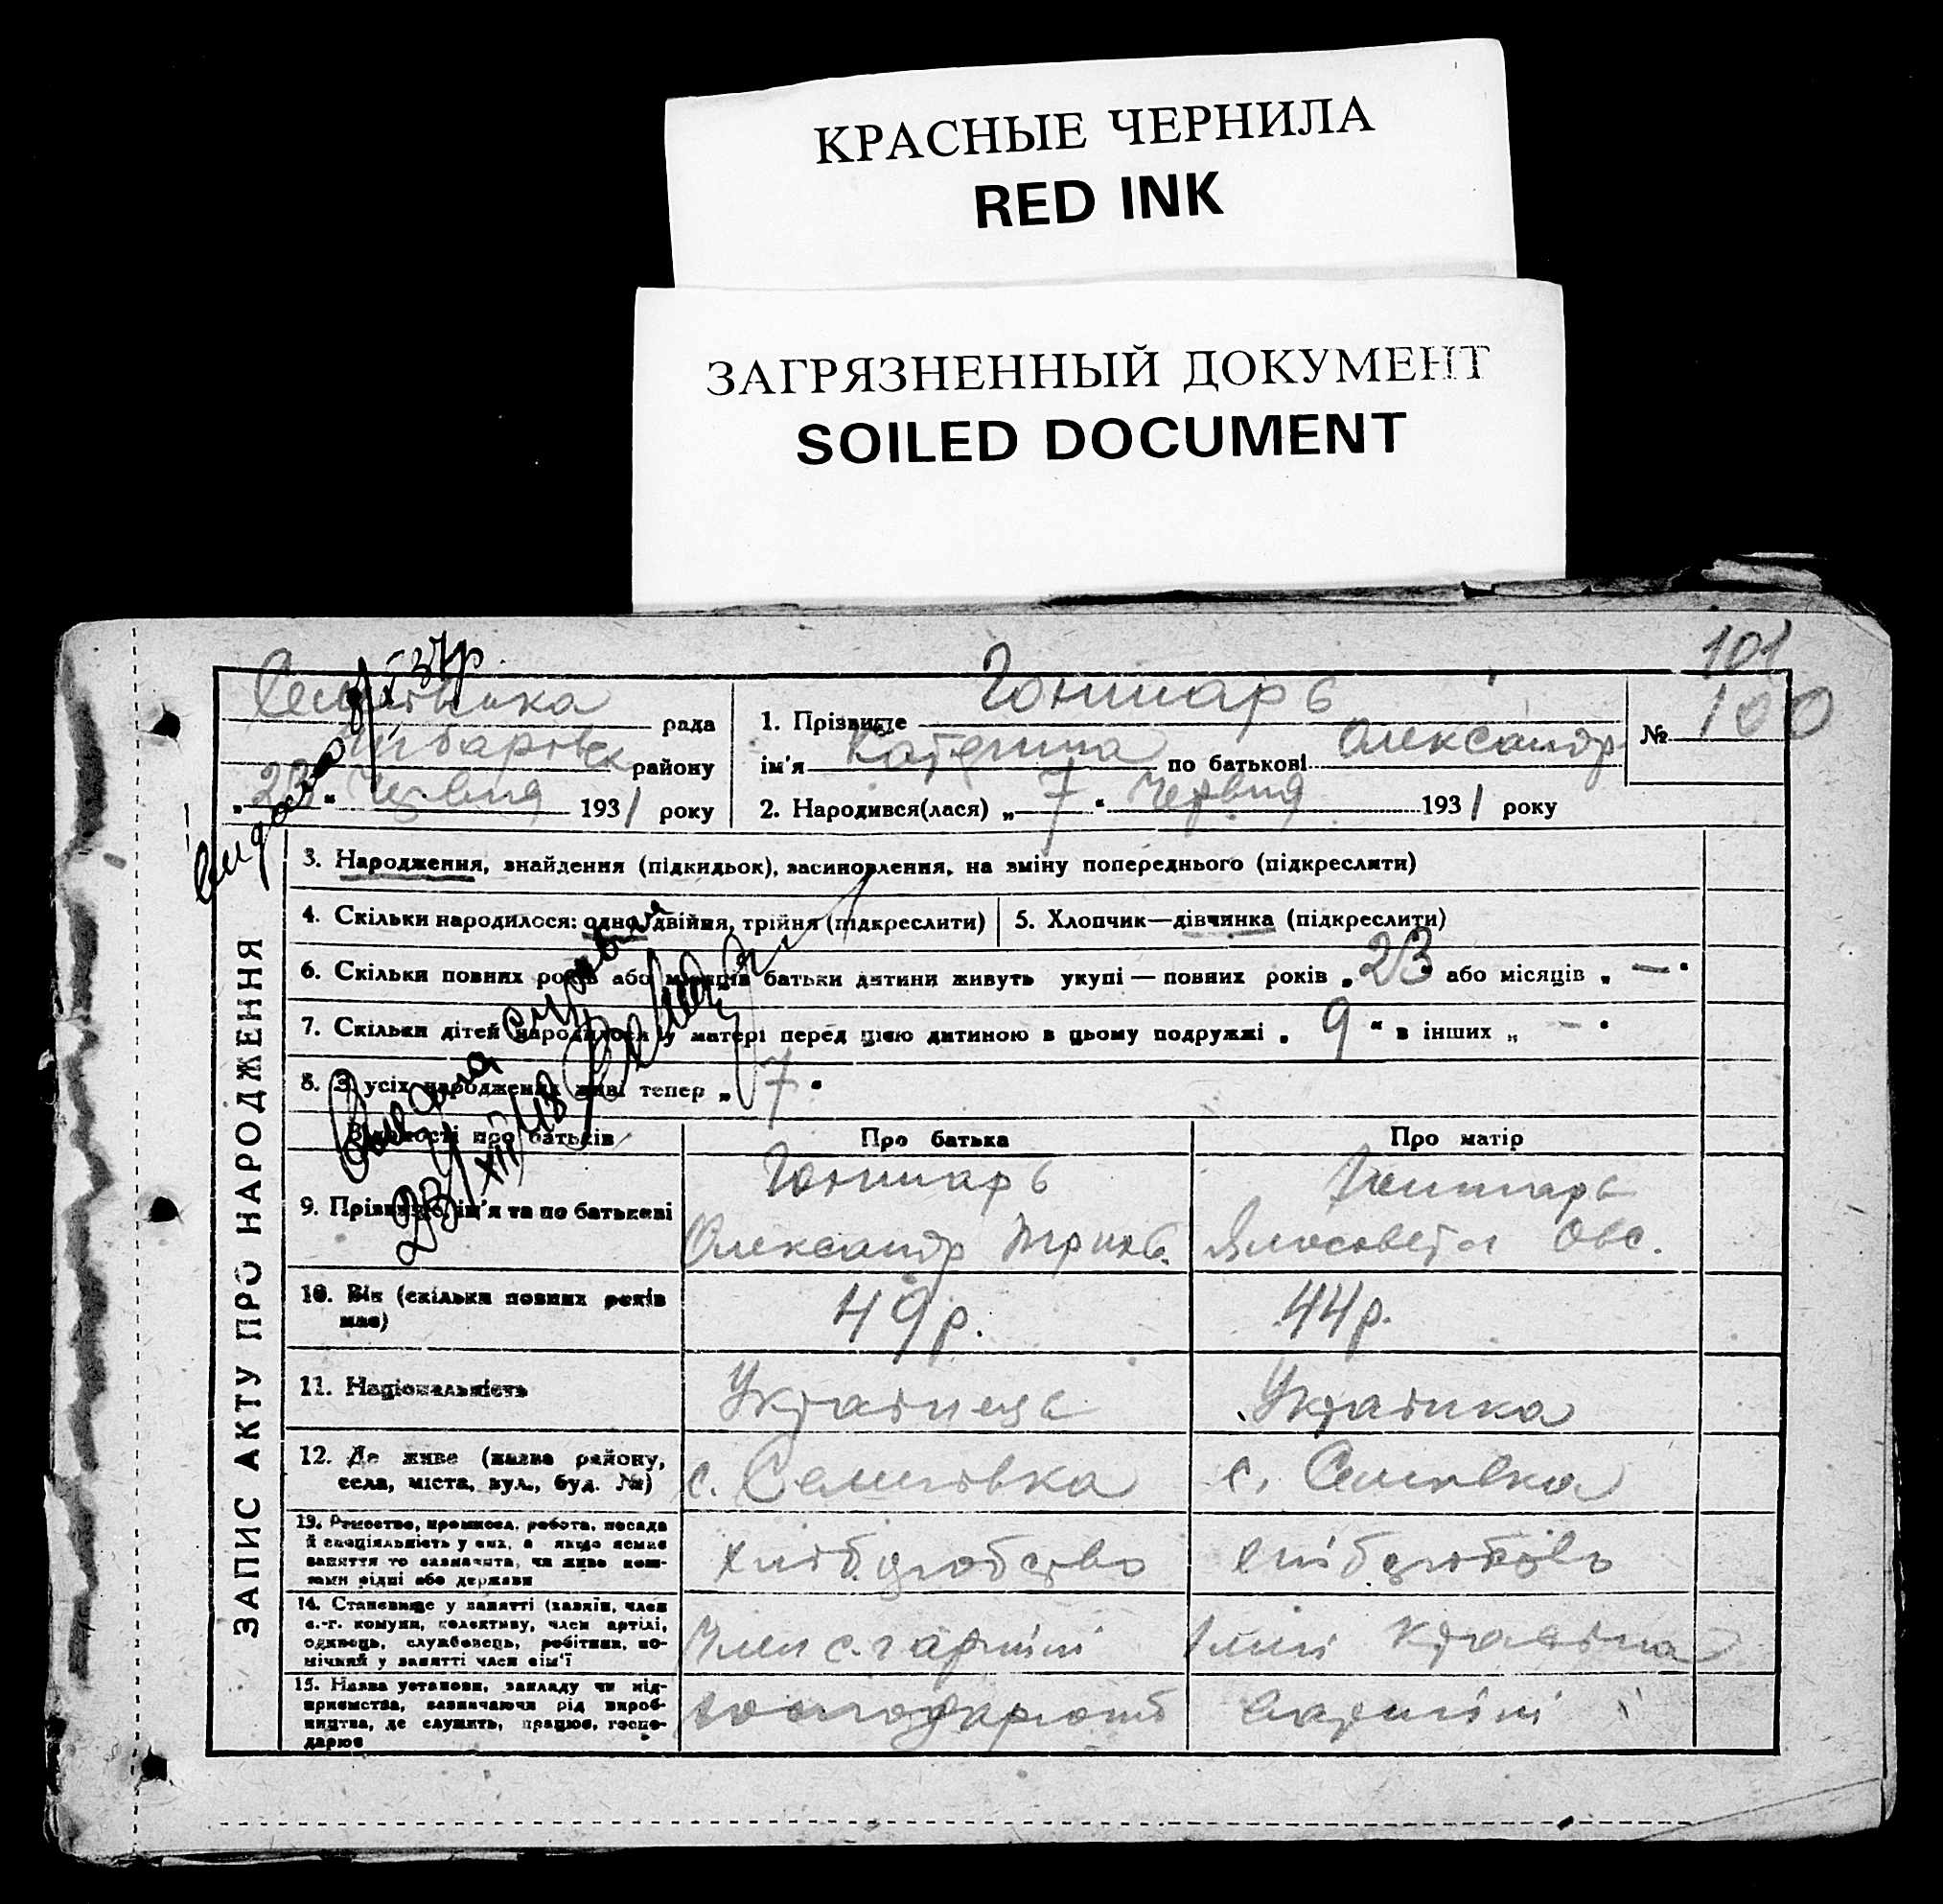 КРАСНЫЕ ЧЕРНИЛА
RED INK
ЗАГРЯЗНЕННЫЙ ДОКУМЕНТ
SOILED DOCUMENT
101
рада
району
„23“ Червня 1931 року
1. Прізвище Гончаръ
ім'я Катерина по батькові Олександр
2. Народився(лася) „7“ Червня 1931 року
№ 100
ЗАПИС АКТУ ПРО НАРОДЖЕННЯ
3. Народження, знайдення (підкидьок), засиновлення, на зміну попереднього (підкреслити)
4. Скільки народилося: одно, двійня, трійня (підкреслити)
5. Хлопчик—дівчинка (підкреслити)
6. Скільки повних років або місяців батьки дитини живуть укупі — повних років „23 або місяців „—“
7. Скільки дітей народилося у матері перед цією дитиною в цьому подружжі „9“ в інших „—“
8. З усіх народжених живі тепер „7“
Видана
23/XII 43
Відомості про батьків
Про батька
Про матір
9. Прізвище, ім'я та по батькові
Гончаръ
Олександр
Гончаръ
Овс.
10. Вік (скільки повних років має)
49 р.
44 р.
11. Національність
Українець
Українка
12. Де живе (назва району,
села, міста, вул., буд. №)
с. Семенівка
с. Семенівка
13. Ремество, промисел, робота, посада
й спеціяльність у них, а якщо немає
заняття то зазначити, чи живе кош-
тами рідні або держави
хліборобство
хліборобство
14. Становище у занятті (хазяїн, член
с.-г. комуни, колективу, член артілі,
одинець, службовець, робітник, по-
мічний у занятті член сім'ї
Член с.г артілі
15. Назва установи, закладу чи під-
приємства, зазначаючи рід вироб-
ництва, де служить, працює, госпо-
дарює